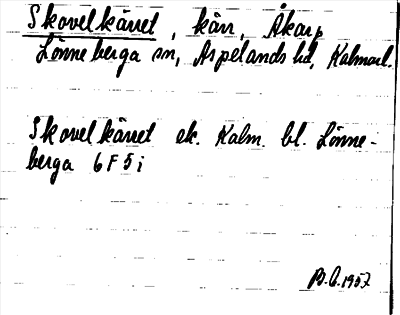 Skovelkärret, kärr, Åkarp
Lönneberga sn, Aspelands hd, Kalmarl.
Skovelkärret ek. Kalm. bl. Lönne-
berga 6 F 5 i
B.O. 1957